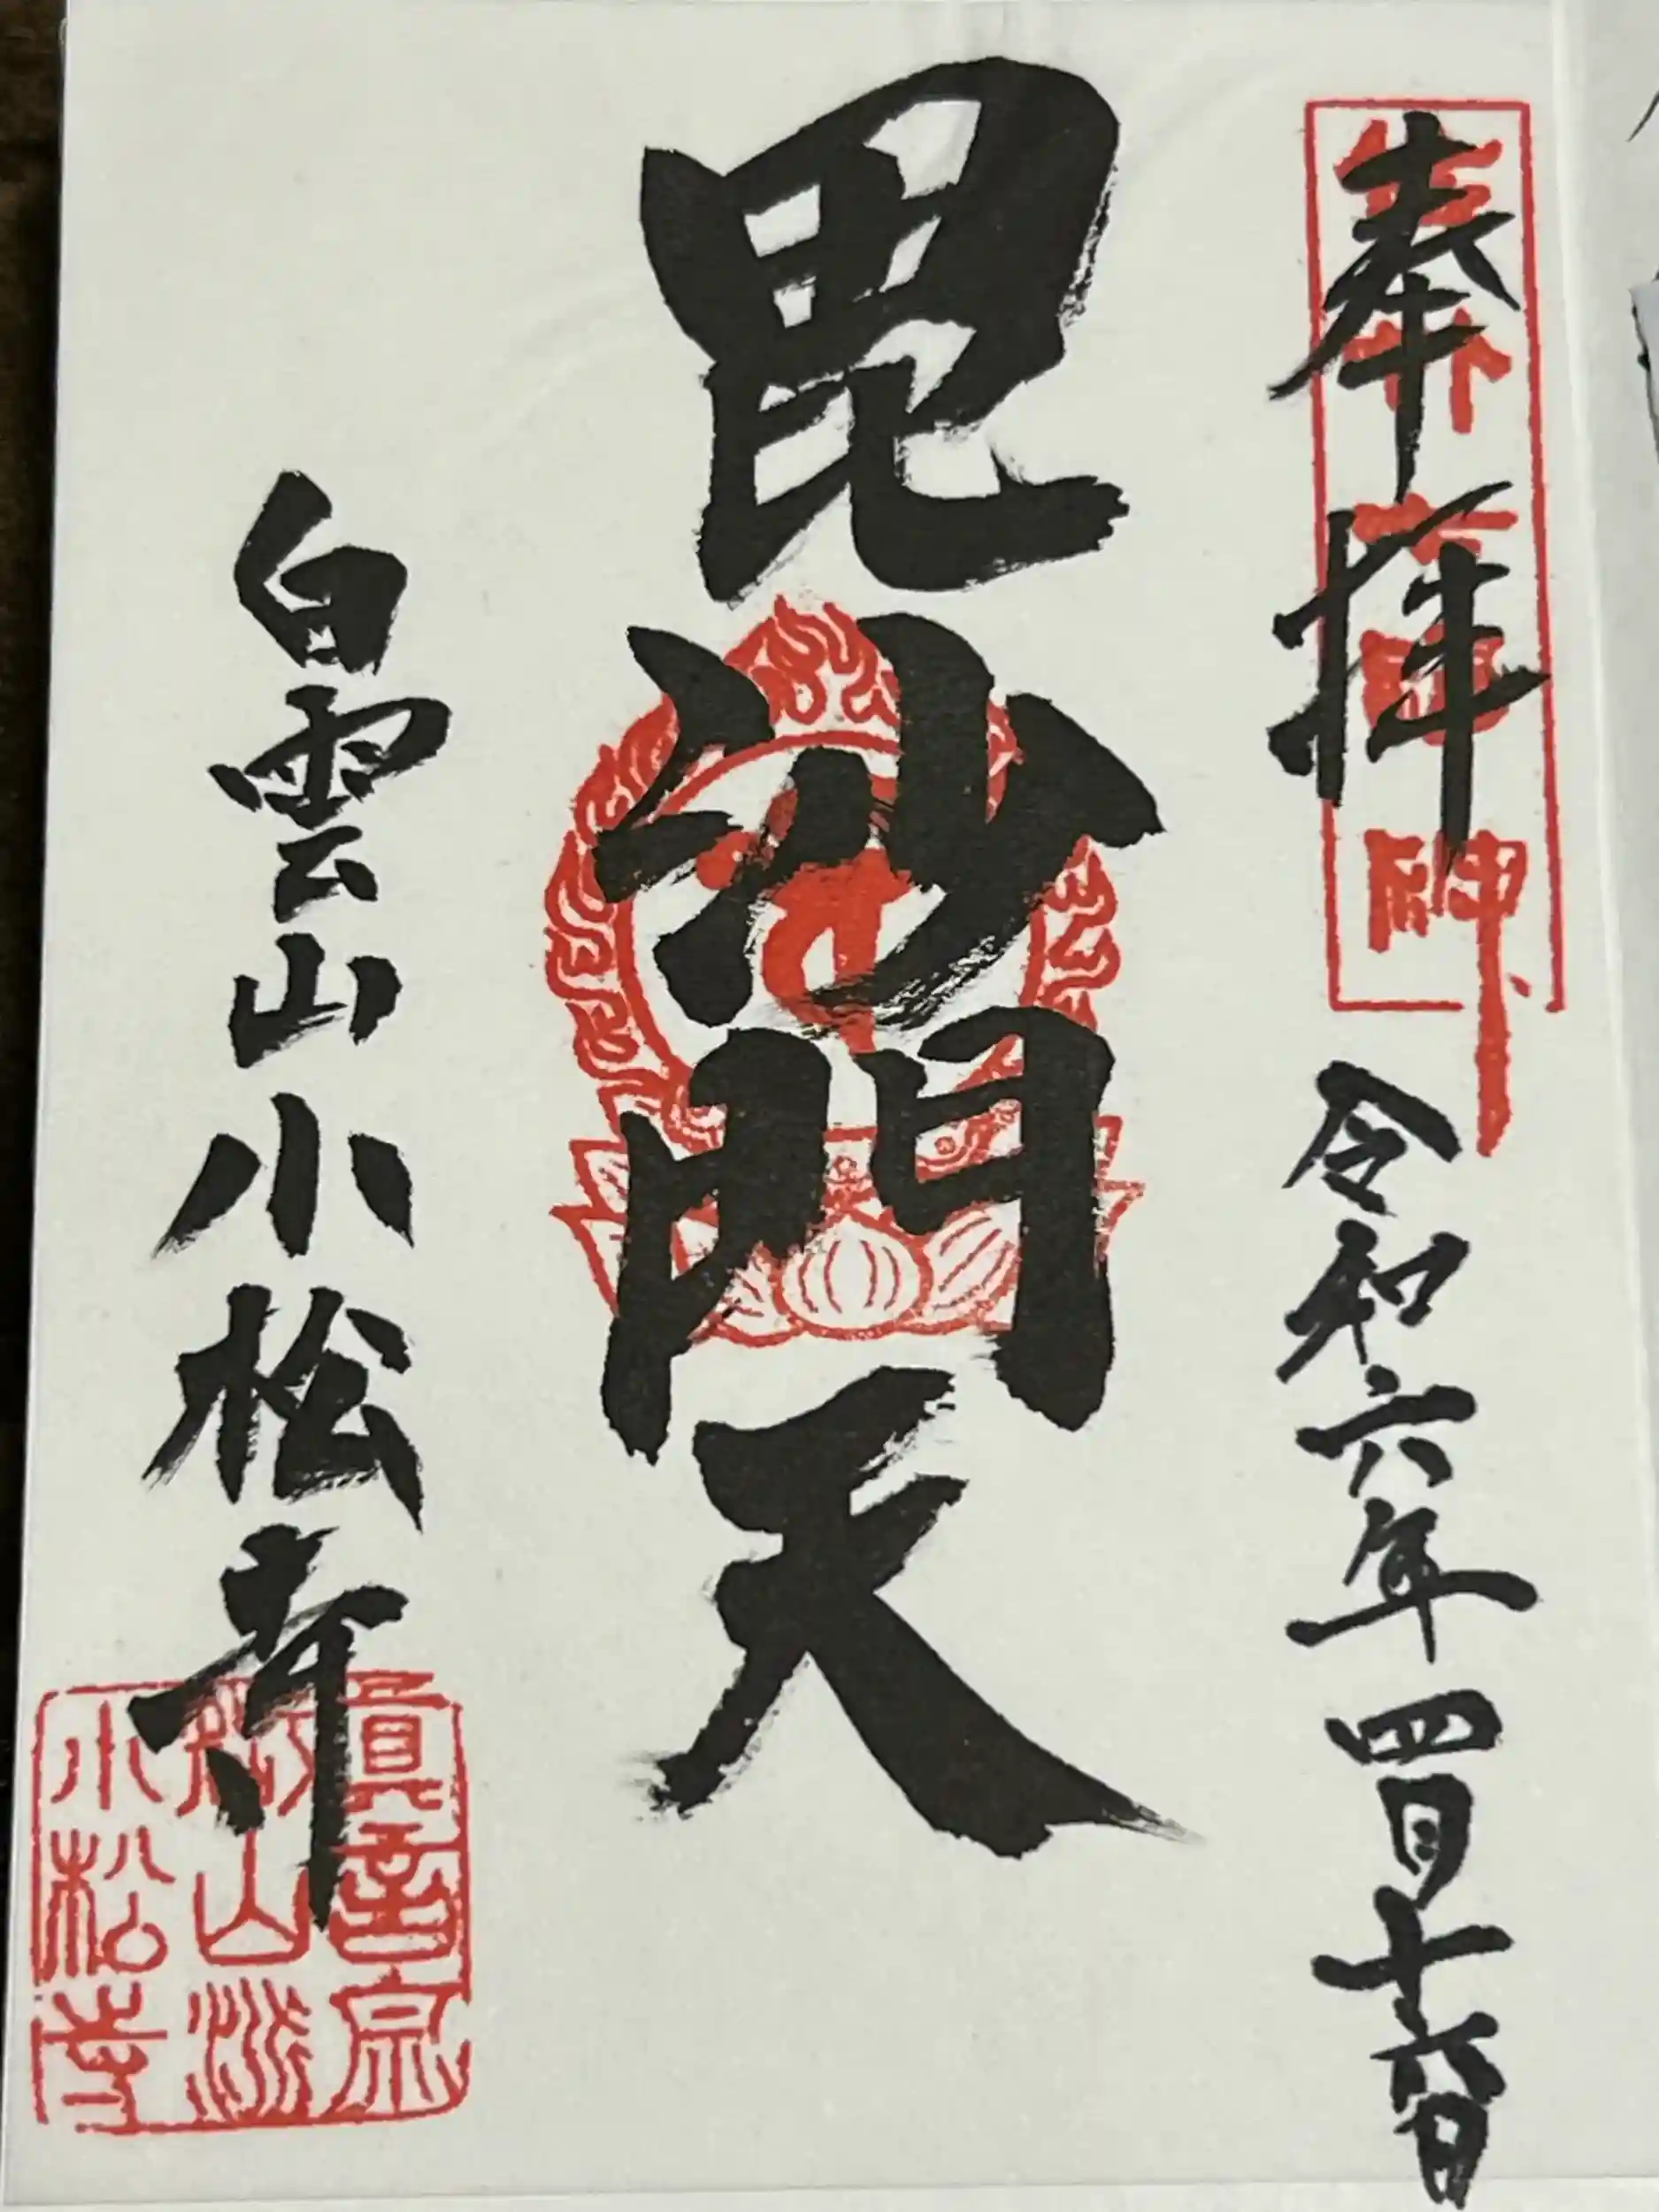 奉拝
令和六年四月十六日
毘沙門天
白雲山小松寺
眞言宗
御山派
小松寺